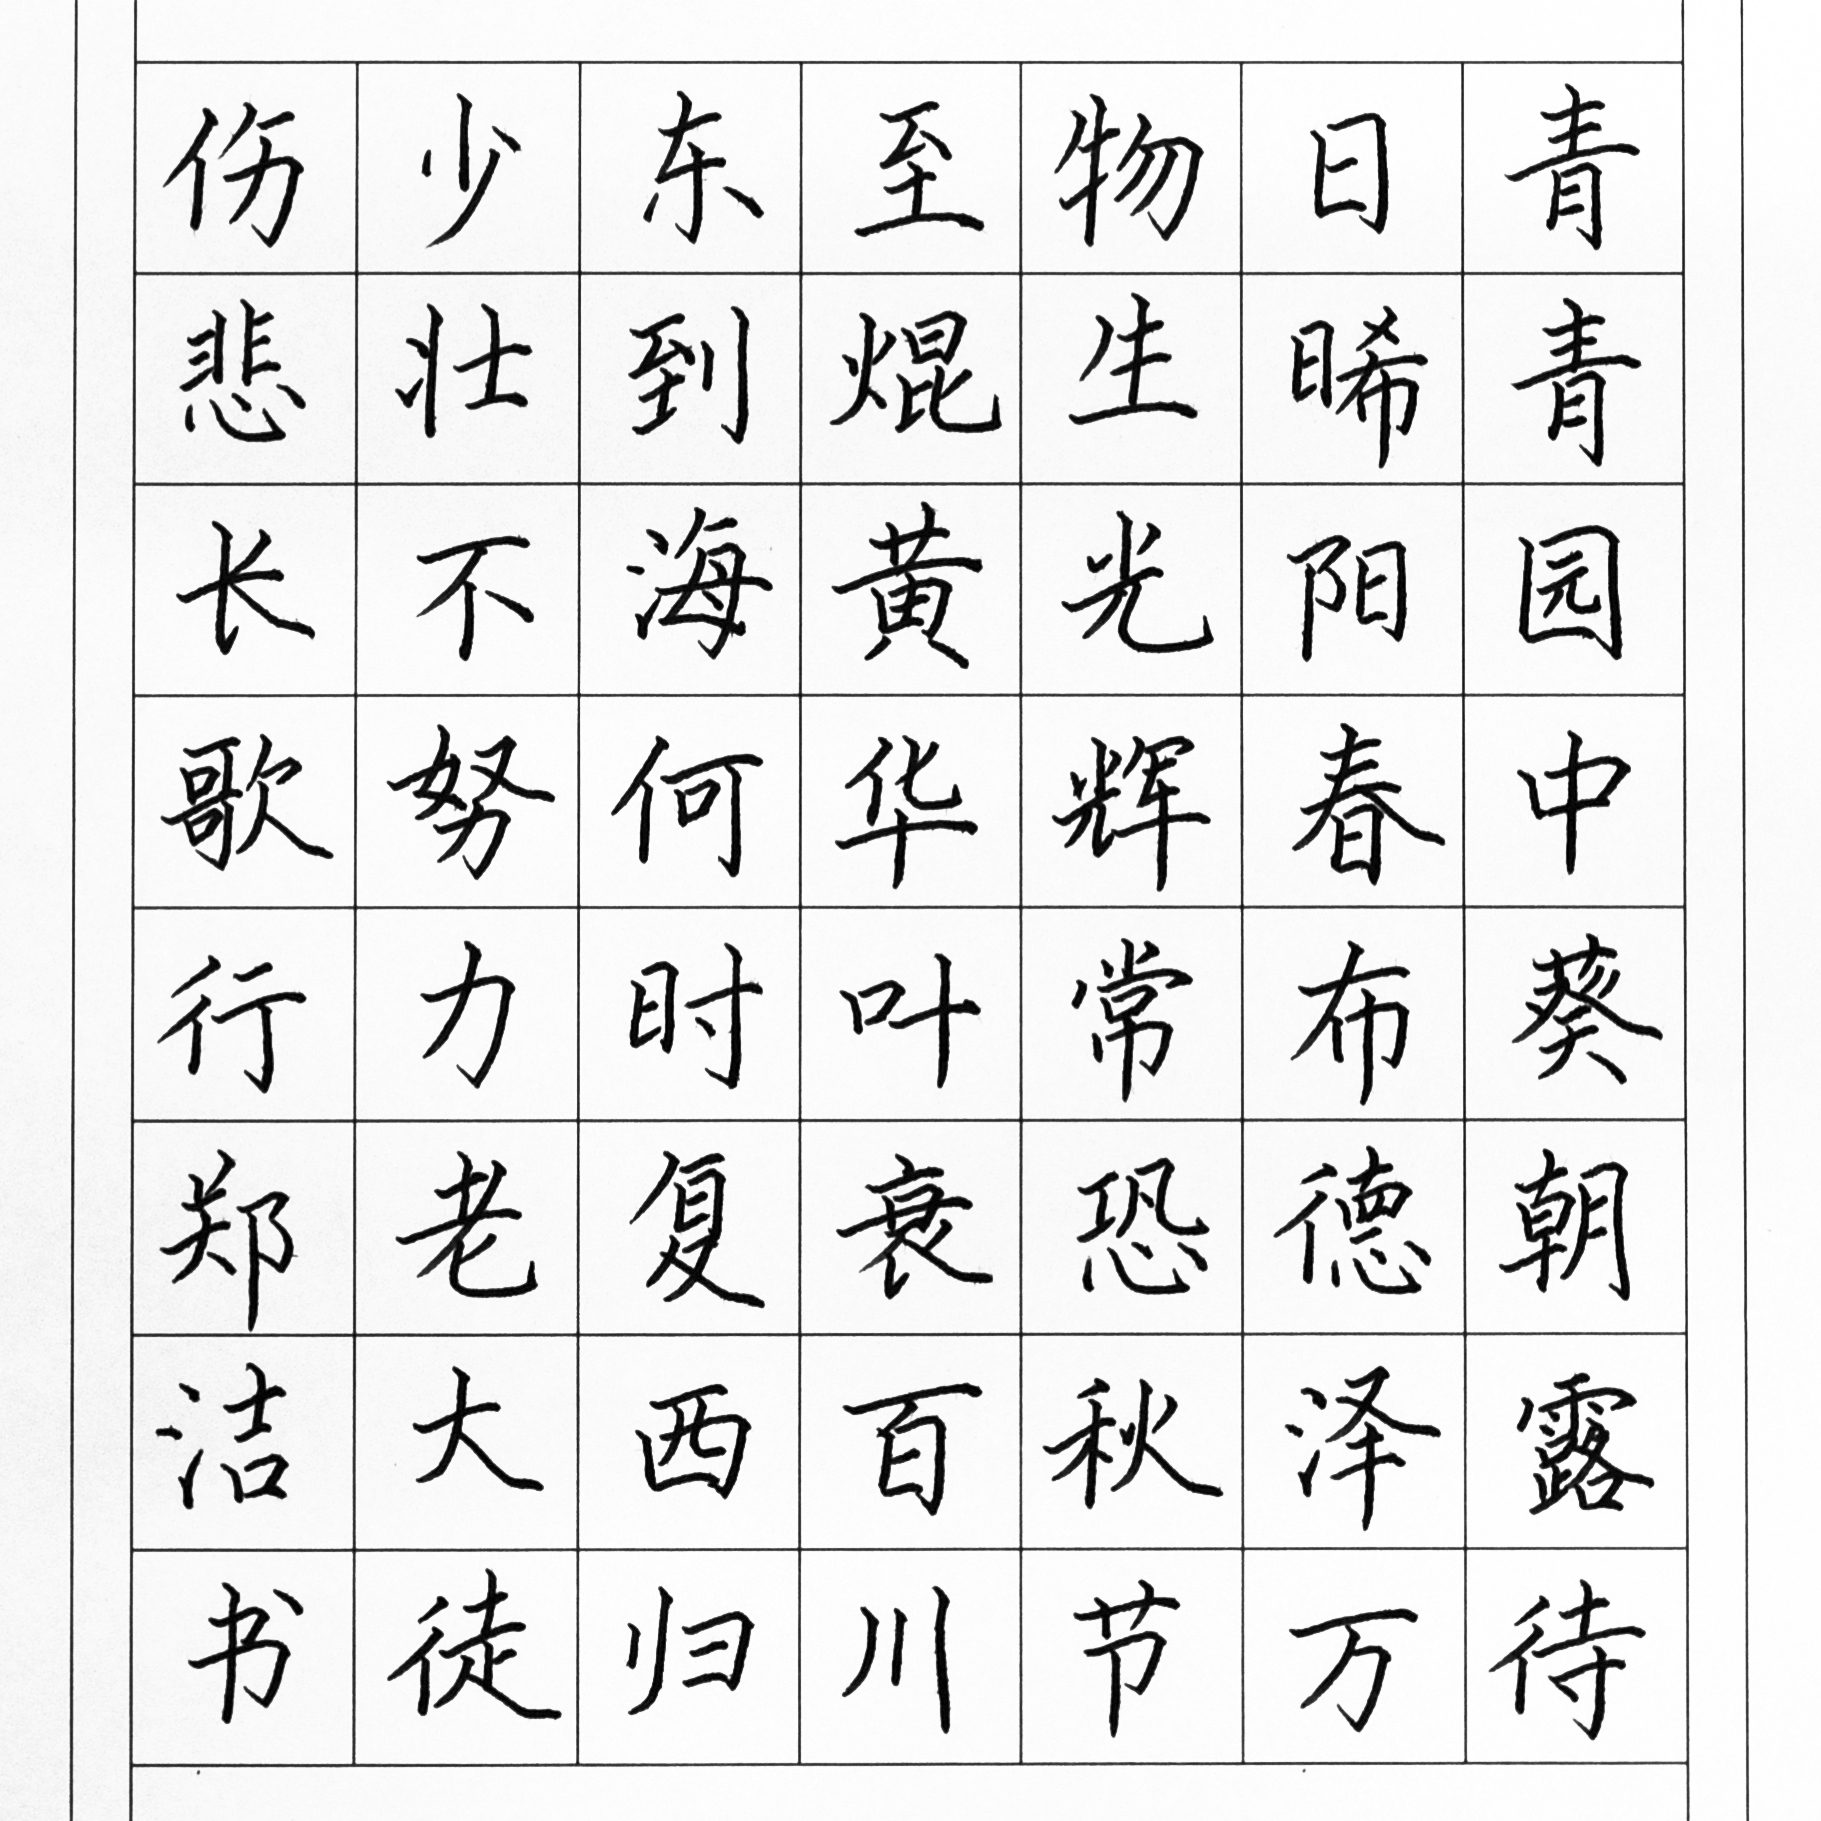 青青园中葵朝露待
日晞阳春布德泽万
物生光辉常恐秋节
至焜黄华叶衰百川
东到海何时复西归
少壮不努力老大徒
伤悲长歌行郑洁书